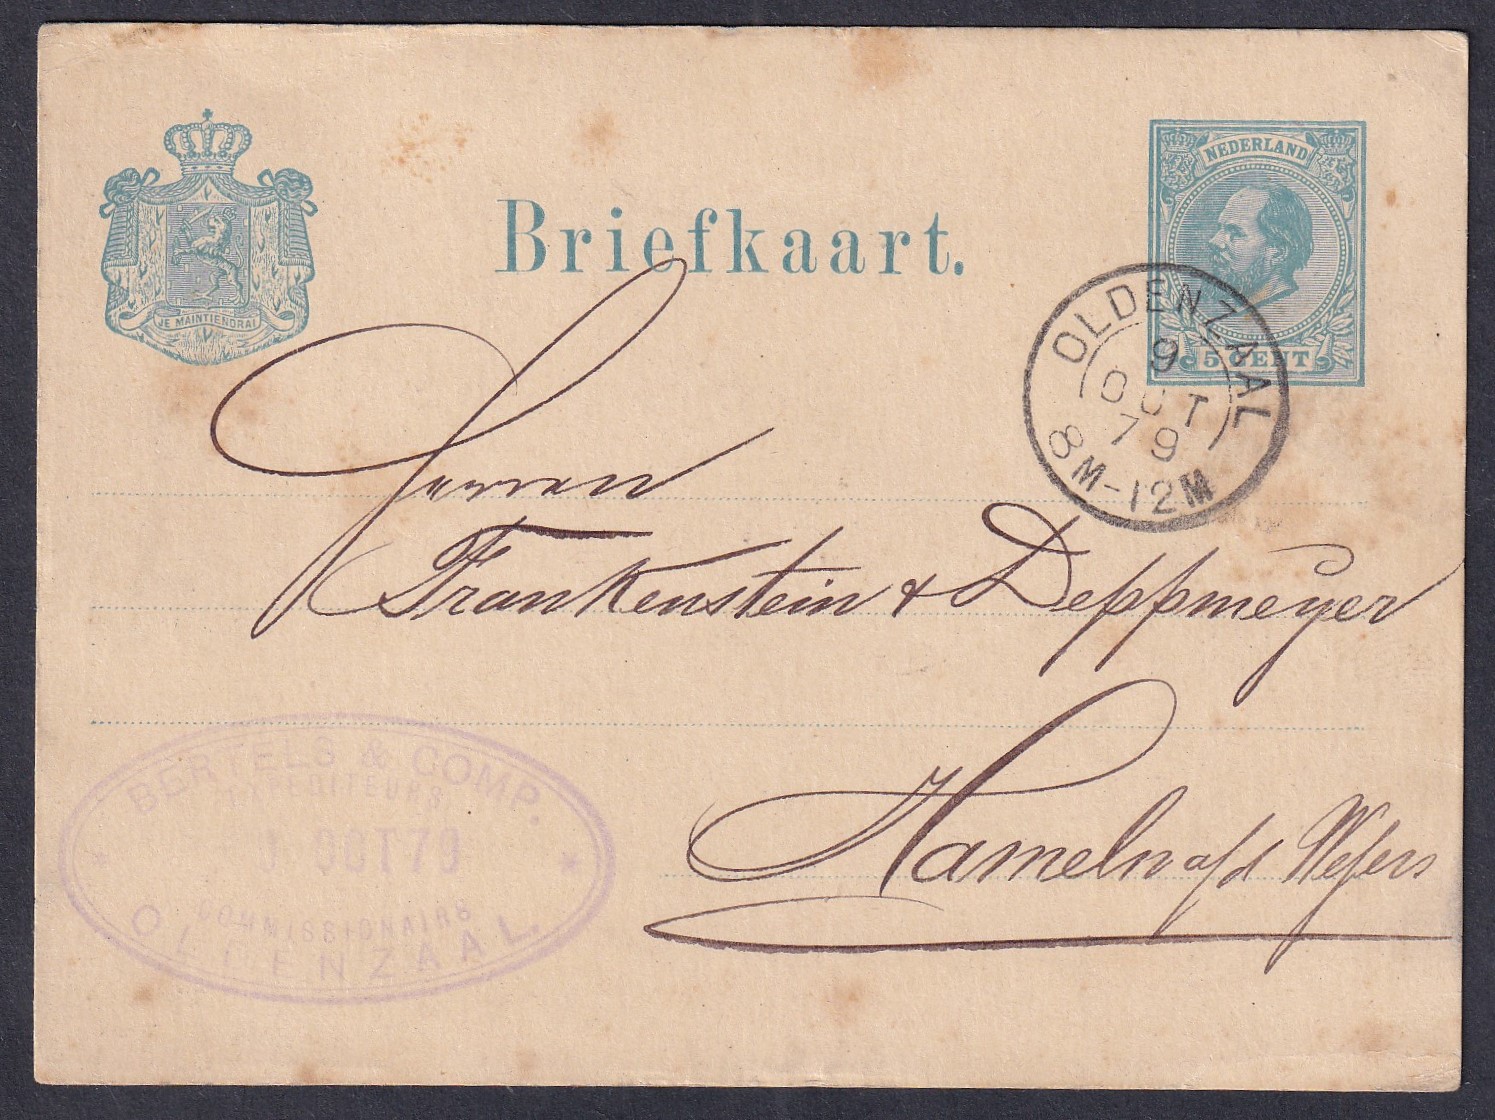 JE MAINTIENDRAI
Briefkaart.
NEDERLAND
5 CENT
OLDENZAAL
9
OCT
79
8M-12M
Herren
Frankenstein & Deppmeyer
Hameln a/d Wesers
BERTELS & COMP.
EXPEDITEURS
OCT 79
COMMISSIONAIRS
OLDENZAAL